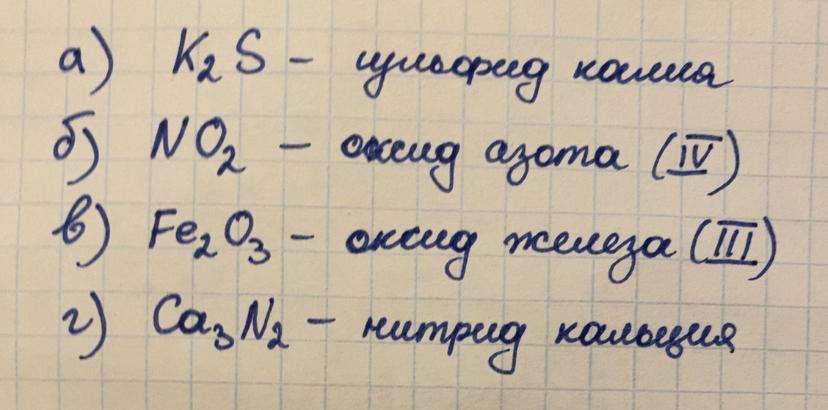 а) K₂S – сульфид калия
б) NO₂ – оксид азота (IV)
в) Fe₂O₃ – оксид железа (III)
г) Ca₃N₂ – нитрид кальция